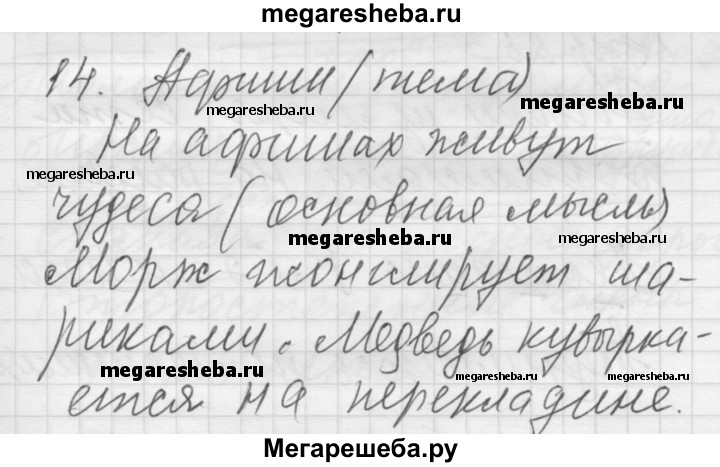 megaresheba.ru
14. Афиши (тема)
megaresheba.ru
megaresheba.ru
На афишах живут
megaresheba.ru
чудеса (основная мысль)
megaresheba.ru
megaresheba.ru
Морж жонглирует ша-
риками. Медведь кувырка-
megaresheba.ru
megaresheba.ru
megaresheba.ru
ется на перекладине.
megaresheba.ru
Мегарешеба.ру